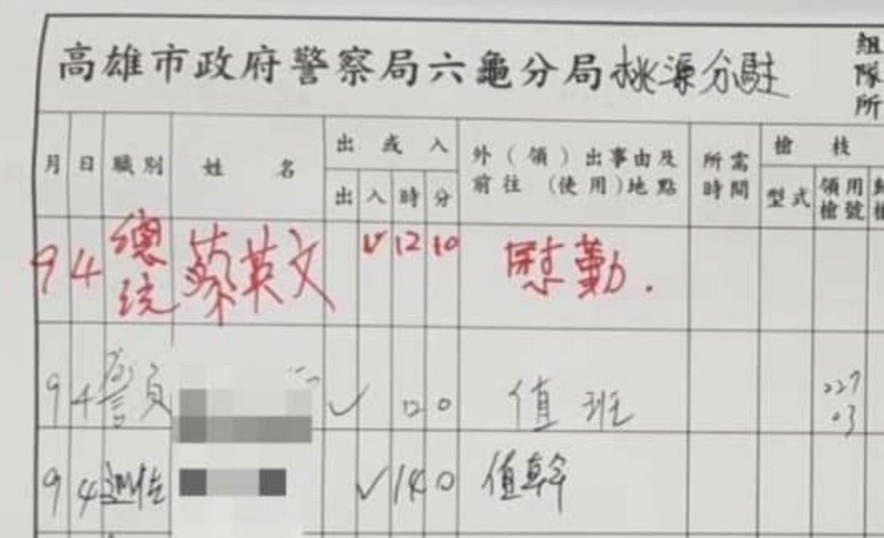 高雄市政府警察局六龜分局桃源分駐
組
隊
所
月 日 職別 姓名 出或入 外(領)出事由及前往(使用)地點 所需時間 槍枝
出 入 時 分 型式 領用槍號
9 4 總統 蔡英文 ✓ 12 10 慰勤.
9 4 警員 ✓ 12 0 值班 227 03
9 4 巡佐 ✓ 14 0 值幹